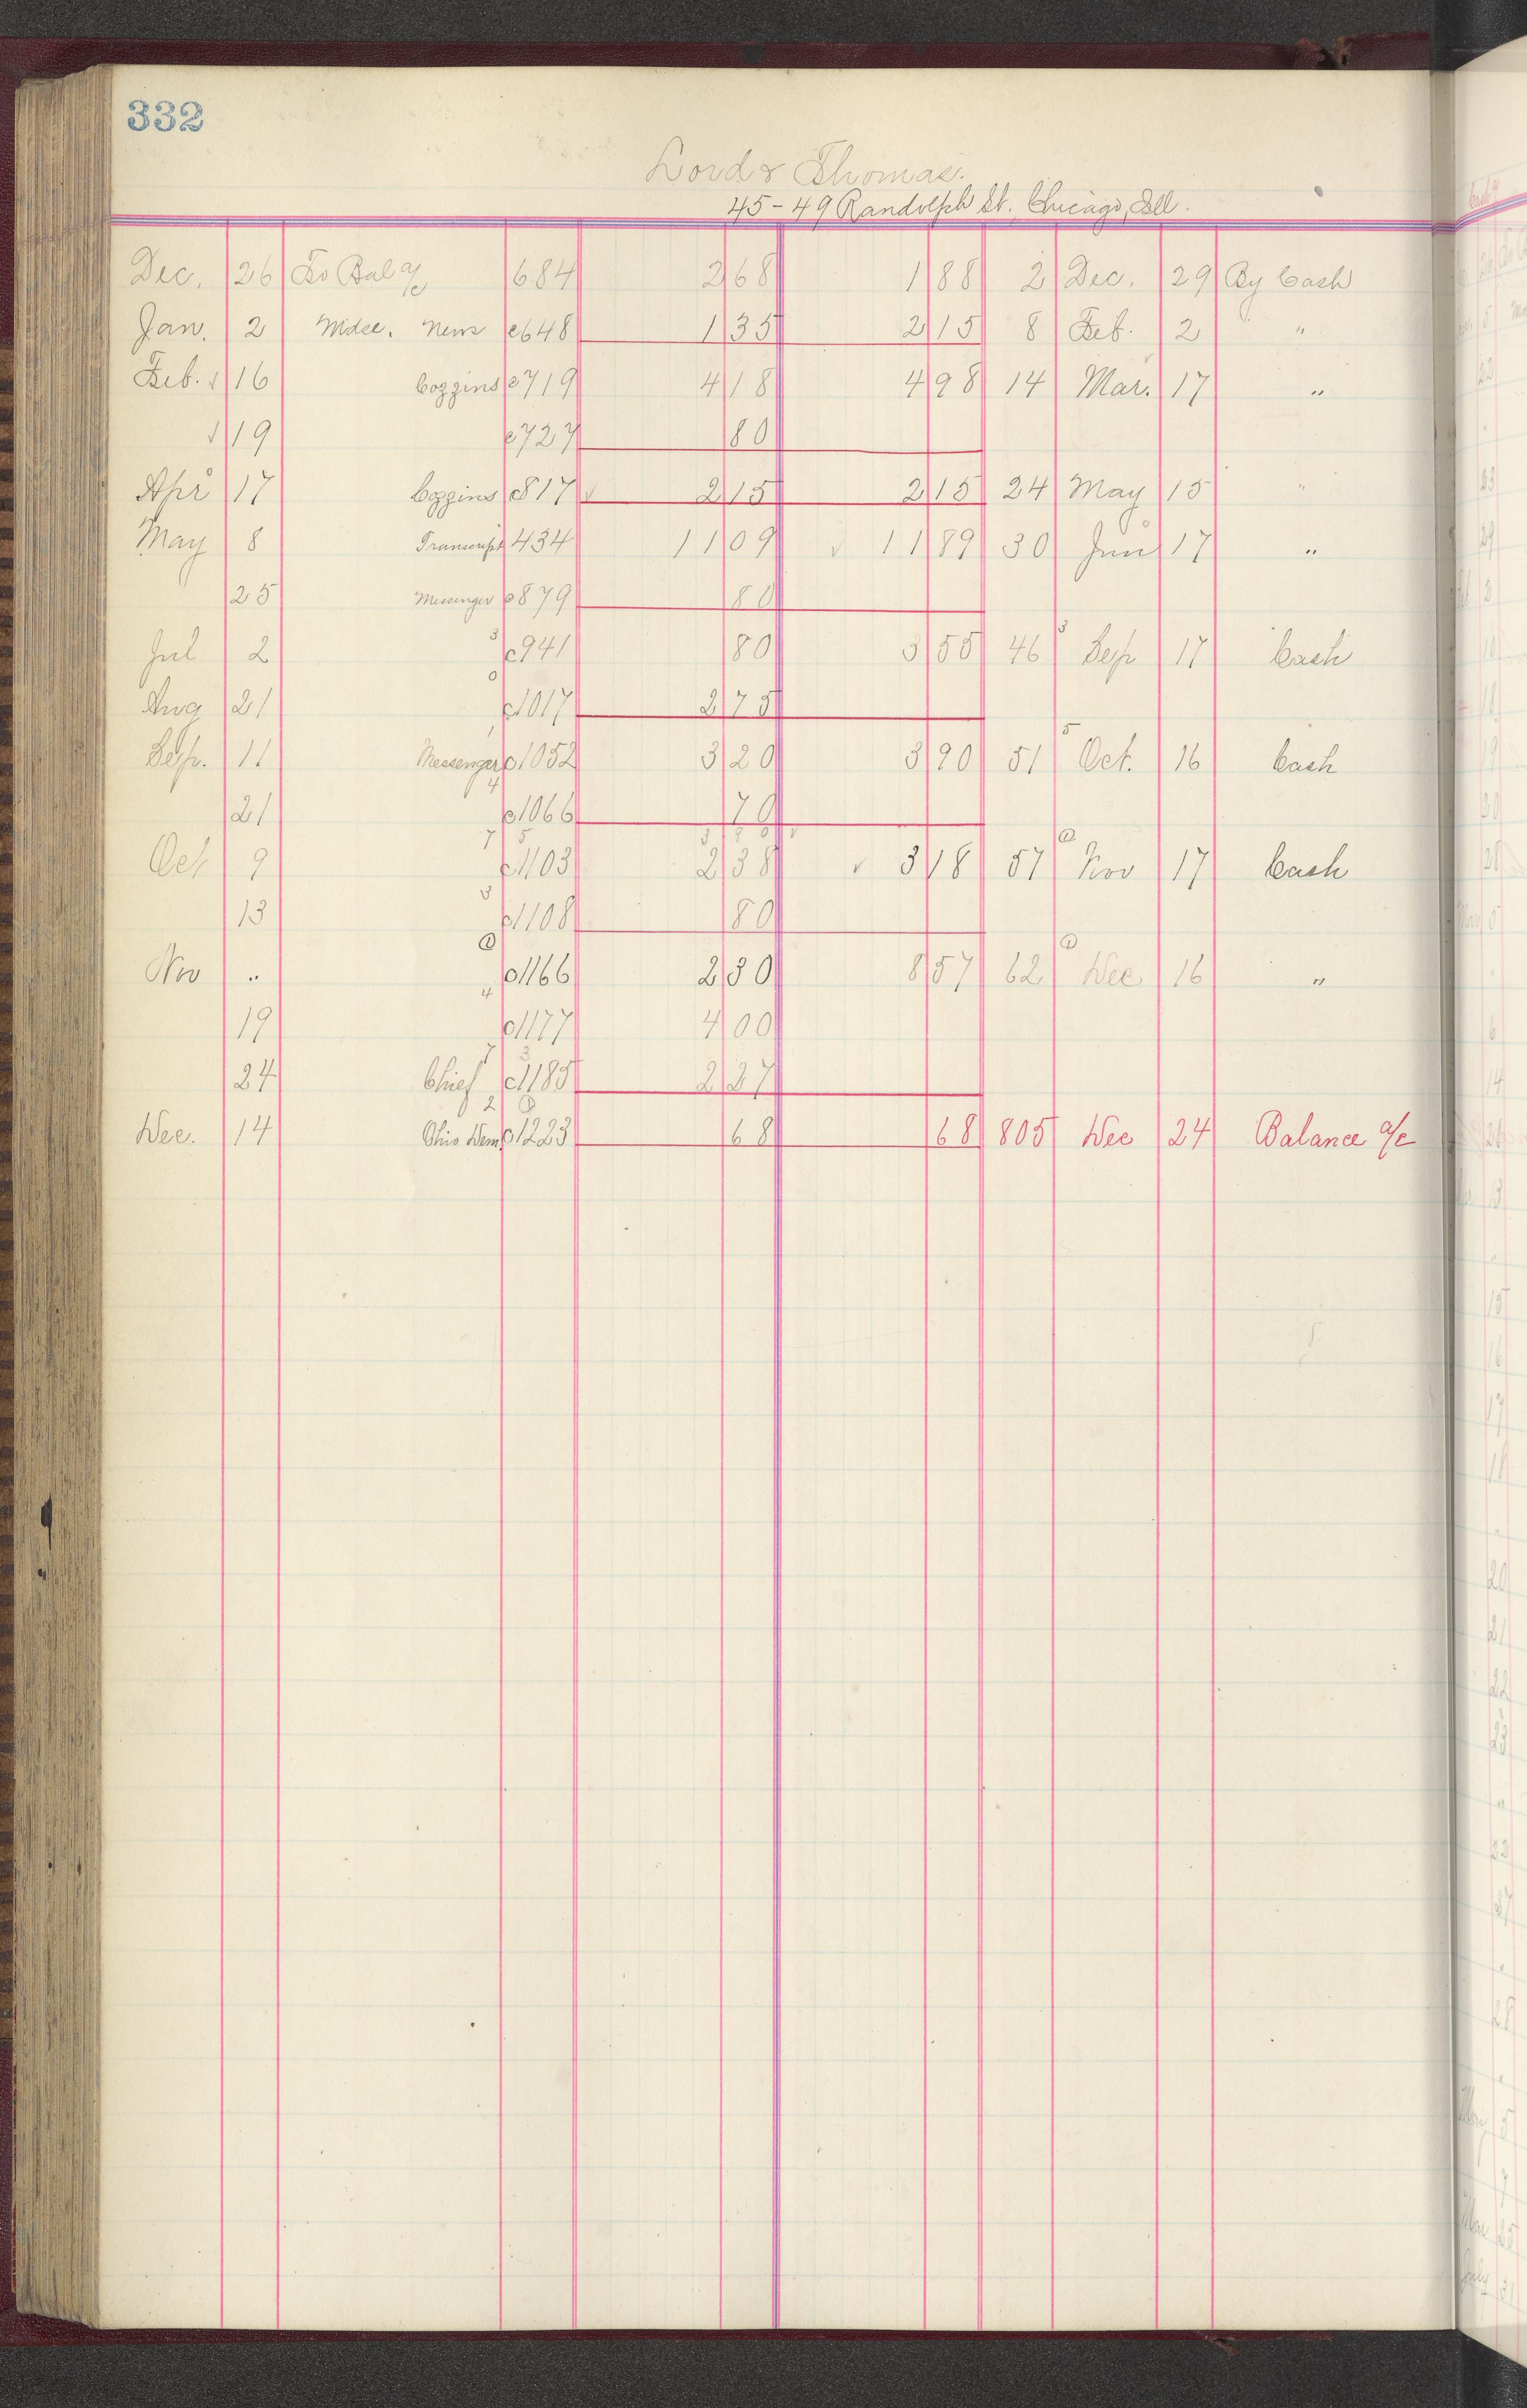 332
Lord & Thomas.
45-49 Randolph St. Chicago, Ill.
Dec. 26 To Bal a/c 684 2 68 1 88 2 Dec. 29 By Cash
Jan. 2 Mdse. News c648 1 35 2 15 8 Feb. 2 "
Feb. √ 16 Coggins c719 4 18 4 98 14 Mar. 17 "
√ 19 c727 80
Apr 17 Coggins c817 √ 2 15 2 15 24 May 15 "
May 8 Transcript 434 11 09 √ 11 89 30 Jun 17 "
25 Messenger c879 80
Jul 2 c941 80 3 55 46 Sep 17 Cash
Aug 21 c1017 2 75
Sep. 11 Messenger c1052 3 20 3 90 51 Oct. 16 Cash
21 c1066 70
3 90 √
Oct 9 c1103 2 38 √ 3 18 57 Nov 17 Cash
13 c1108 80
Nov " c1166 2 30 8 57 62 Dec 16 "
19 c1177 4 00
24 Chief c1185 2 27
Dec. 14 Ohio Dem c1223 68 68 805 Dec 24 Balance a/c